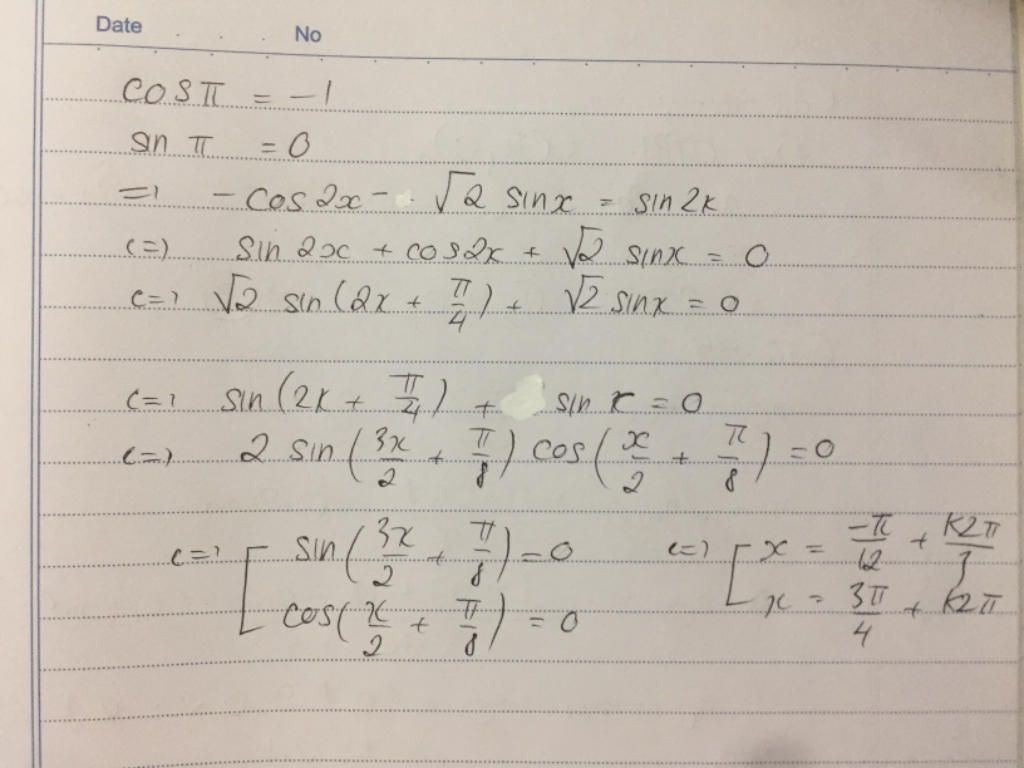 Date No
cos π = -1
sin π = 0
=> - cos 2x - √2 sin x = sin 2x
<=> sin 2x + cos 2x + √2 sin x = 0
<=> √2 sin (2x + π/4) + √2 sin x = 0
<=> sin (2x + π/4) + sin x = 0
<=> 2 sin (3x/2 + π/8) cos (x/2 + π/8) = 0
<=> [ sin (3x/2 + π/8) = 0 <=> [ x = -π/12 + k2π/3
cos (x/2 + π/8) = 0 x = 3π/4 + k2π